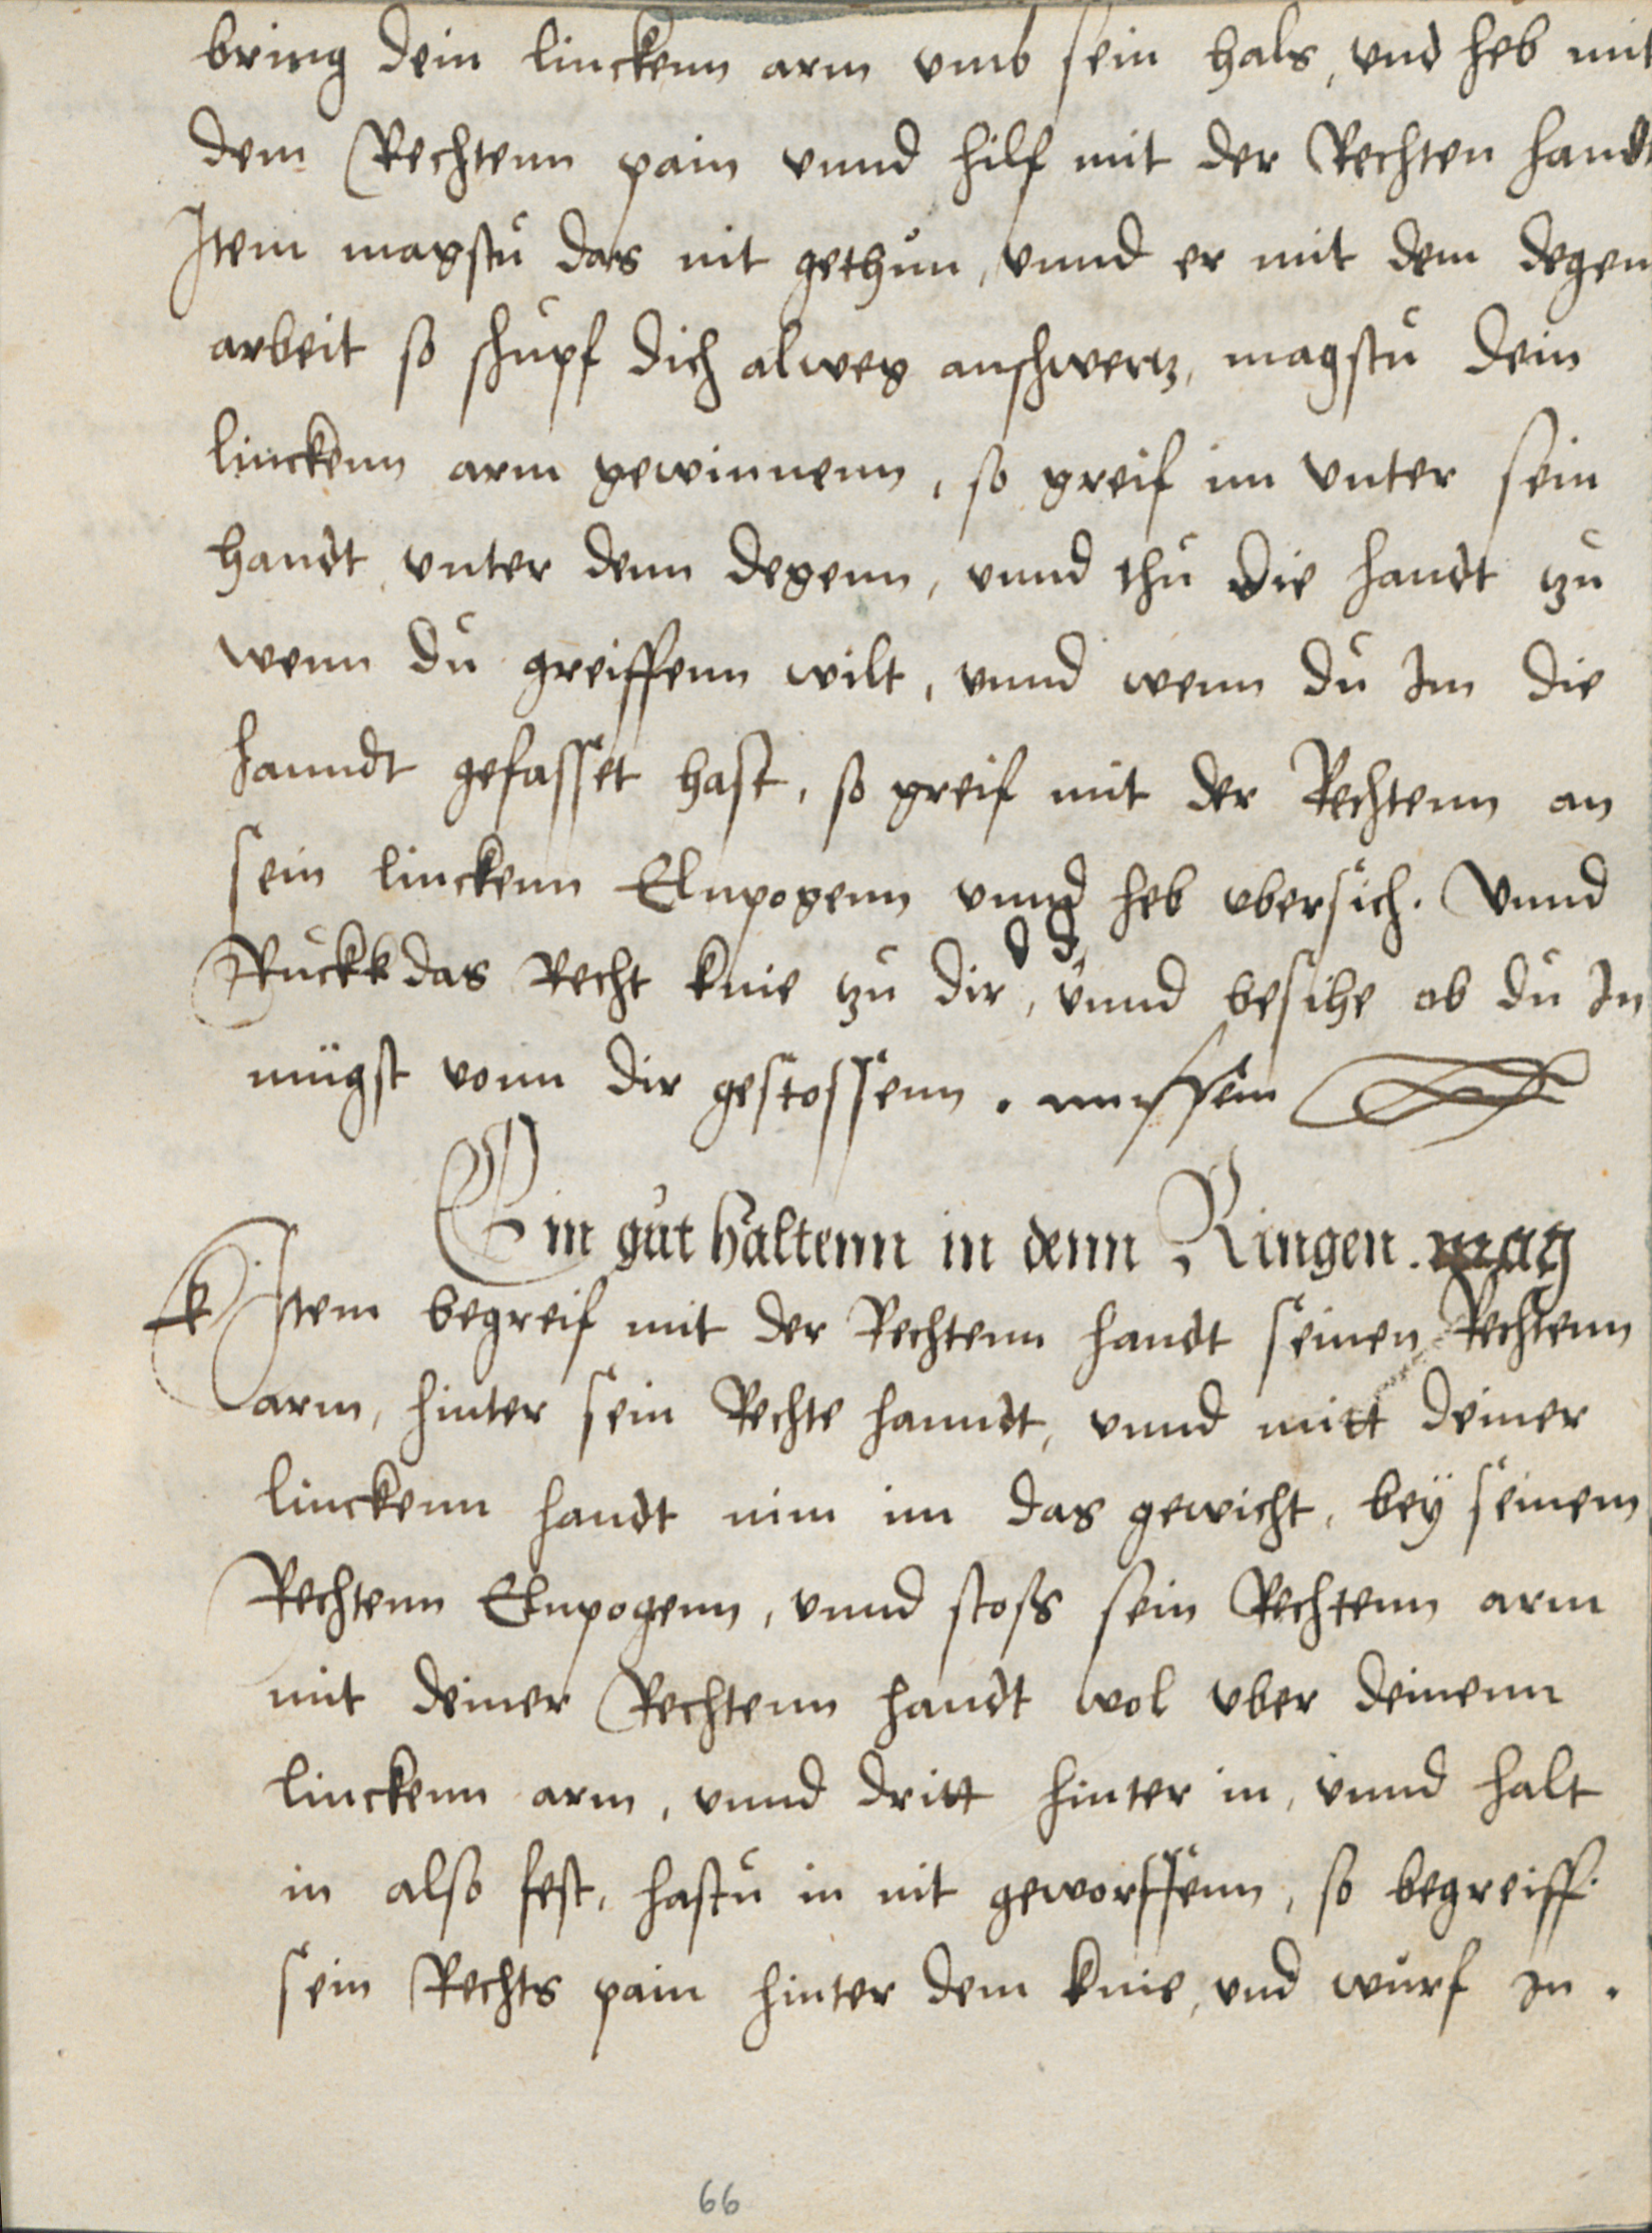 bring dein linckenn arm vmb sein hals, vnd heb mit
dem Rechtenn pain vnnd hilf mit der Rechten handt
Item magstu das nit gethun, vnnd er mit dem degen
arbeit so schupf dich alweg anschwertz, magstu dein
linckenn arm gewinnenn, so greif im vnter sein
handt vnter denn degenn, vnnd thu die handt zu
wenn du greiffenn wilt, vnnd wenn du Im die
hanndt gefasset hast, so greif mit der Rechtenn an
sein linckenn Elnpogenn vnnd heb vbersich. Vnnd
Ruckk das Recht knie zu dir, vnnd besihe ob du In
mügst vonn dir gestossenn.
Ein gut haltenn in denn Ringen. mag
Item begreif mit der Rechtenn handt seinen Rechtenn
arm, hinter sein Rechte hanndt, vnnd mitt deiner
linckenn handt nim im das gewicht, bey seinem
Rechtenn Elnpogenn, vnnd stoss sein Rechtenn arm
mit deiner Rechtenn handt wol vber deinenn
linckenn arm, vnnd dritt hinter in, vnnd halt
in also fest, hastu in nit geworffenn, so begreiff
sein Rechts pain hinter dem knie, vnd wurf In.
66